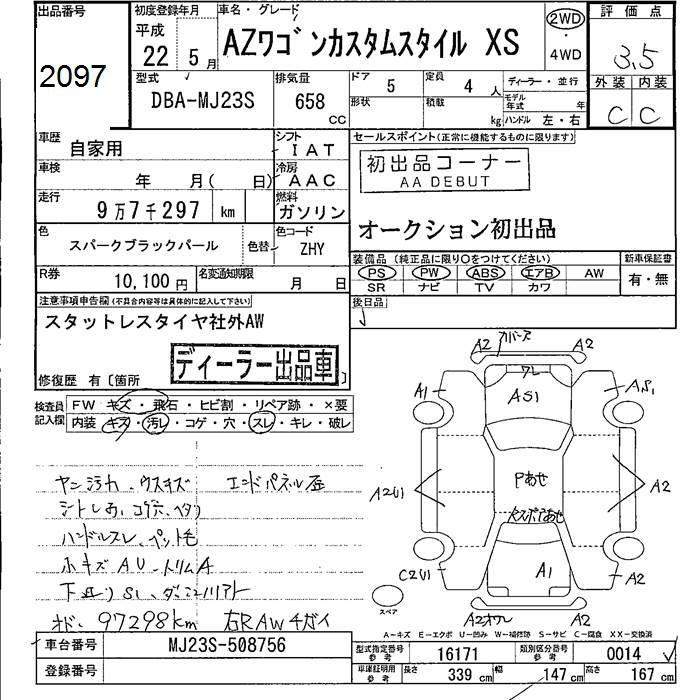 出品番号
2097
初度登録年月
平成
22 5 月
車名・グレード
AZワゴンカスタムスタイル XS
2WD
・
4WD
評価点
3.5
外装 内装
C C
型式
DBA-MJ23S
排気量
658
CC
ドア 5
定員 4 人
形状
積載 kg
ディーラー・並行
モデル年式 年
ハンドル 左・右
車歴 自家用
シフト
I A T
車検 年 月( 日)
冷房
A A C
走行 9万7千297 km
燃料
ガソリン
セールスポイント(正常に機能するものに限ります)
初出品コーナー
AA DEBUT
オークション初出品
色
スパークブラックパール
色替
色コード
ZHY
装備品 (純正品に限り○をつけてください)
新車保証書
PS PW ABS エアB AW
有・無
SR ナビ TV カワ
R券
10,100 円
名変通知期限
月 日
後日品
注意事項申告欄(不具合内容等は具体的に記入して下さい)
スタットレスタイヤ社外AW
ディーラー出品車
修復歴 有〔箇所 〕
検査員記入欄
FW キズ・飛石・ヒビ割・リペア跡・×要
内装 キズ・汚レ・コゲ・穴・スレ・キレ・破レ
エンドパネル
シトレ
ハンドルスレ、ペット毛
ホキズ AU トリムA
下 S1
97298km 右RAWキガイ
A2 カバース A2
ワレ
A1 AS1 AS1
A2U1 Pあせ A2
C2U1 A1 A2
A2 A2
スペア
A-キズ E-エクボ U-凹み W-補修跡 S-サビ C-腐食 XX-交換済
車台番号 MJ23S-508756
登録番号
型式指定番号
参考
16171
類別区分番号
参考
0014
車庫証明用
参考
長さ 339 cm 幅 147 cm 高さ 167 cm